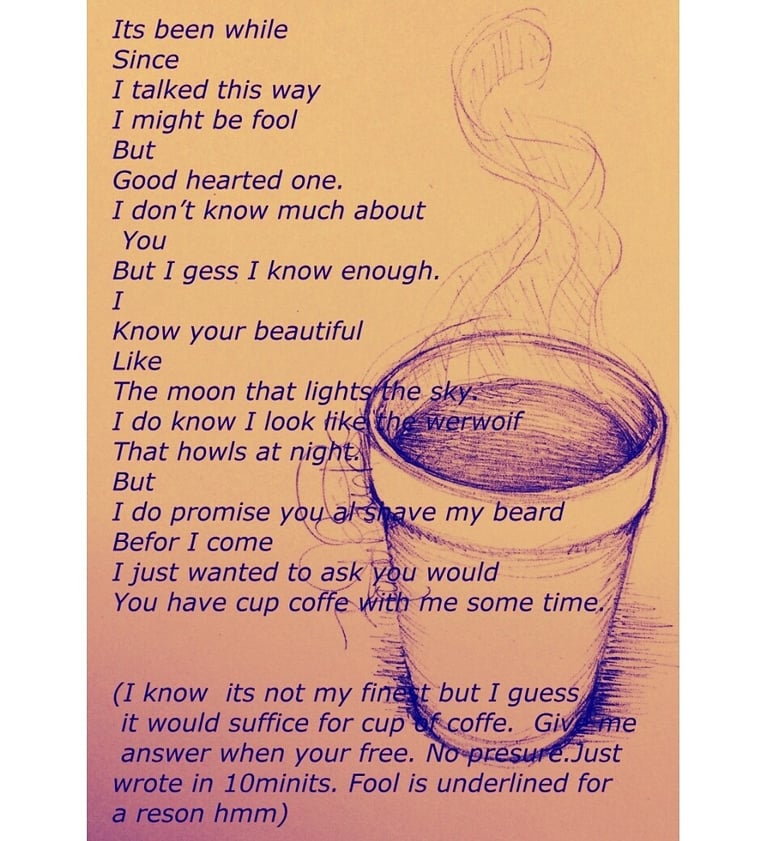 Its been while
Since
I talked this way
I might be fool
But
Good hearted one.
I don’t know much about
You
But I gess I know enough.
I
Know your beautiful
Like
The moon that lights the sky.
I do know I look like the werwolf
That howls at night.
But
I do promise you al shave my beard
Befor I come
I just wanted to ask you would
You have cup coffe with me some time.
(I know its not my finest but I guess
it would suffice for cup of coffe. Give me
answer when your free. No presure.Just
wrote in 10minits. Fool is underlined for
a reson hmm)